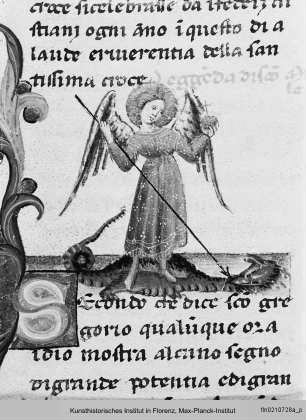 croce si celebrasse da i fedeli cri
stiani ogni año ĩ questo di a
laude e riverentia della san
tissima croce
Secondo che dice sc̃o gre
gorio qualũque ora
idio mostra alcuno segno
di grande potentia e di gran
Kunsthistorisches Institut in Florenz, Max-Planck-Institut